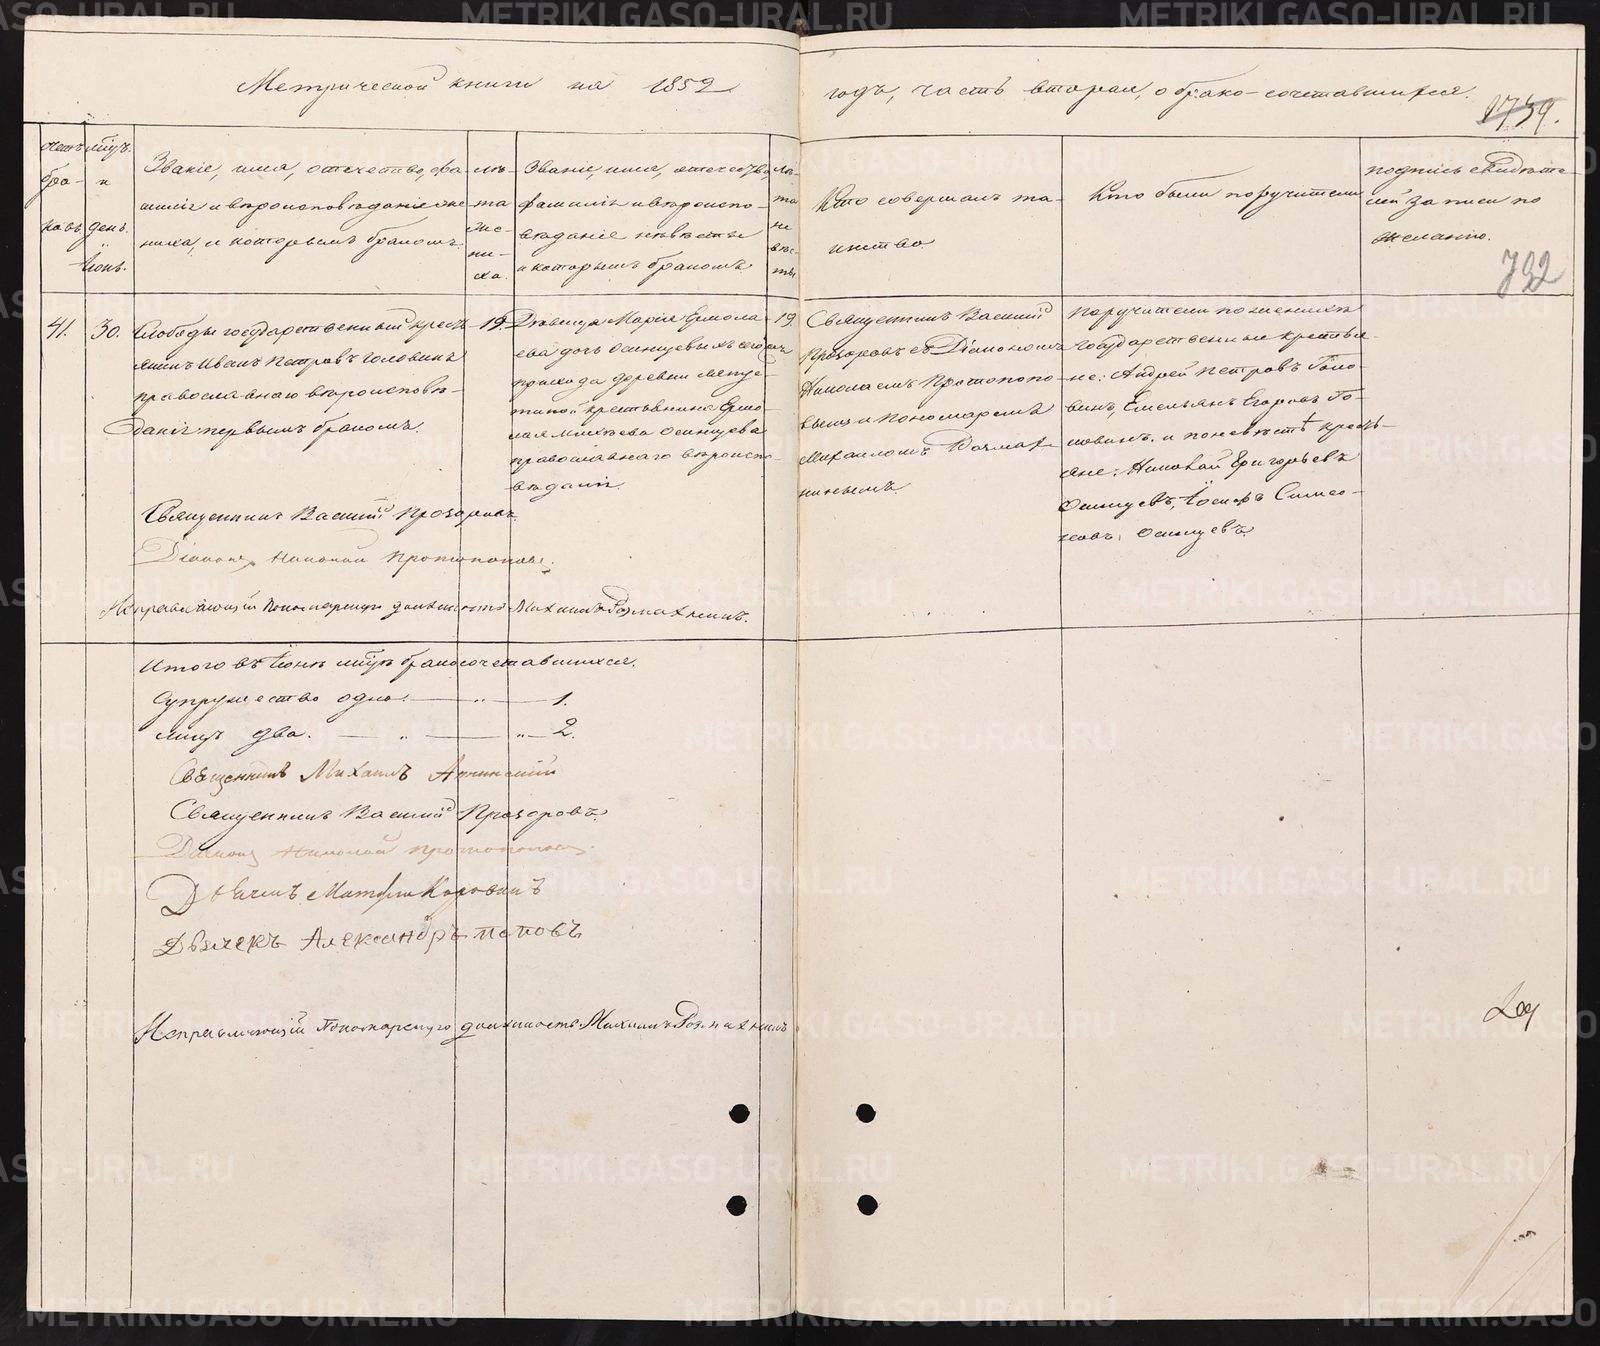 Метрической книги на 1852
годъ, часть вторая, о брако-сочетавшихся.
1739.
732
Счетъ
бра-
ковъ.
мѣсяцъ
и
день.
Іюнь.
Званіе, имя, отечество, фа-
милія и вѣроисповѣданіе же-
ниха, и которымъ бракомъ.
лѣ-
та
же-
ни-
ха.
Званіе, имя, отечество,
фамилія и вѣроиспо-
вѣданіе невѣсты
и которымъ бракомъ
лѣ-
та
не
вѣс-
ты.
Кто совершалъ та-
инство
Кто были поручители
подпись свидѣте-
лей записи по
желанію.
41.
30.
Слободы государственный кресть-
янинъ Иванъ Петровъ Головинъ
православнаго вѣроисповѣ-
данія первымъ бракомъ.
19.
Дѣвица Марія Ермола-
ева дочь Осинцевыхъ сего
прихода деревни
крестьянина Ермо-
лая Осинцева
православнаго вѣроиспо-
вѣданія.
19.
Священникъ Василій
Прозоровъ съ Діакономъ
Николаемъ Протопопо-
вымъ и Пономаремъ
Михаиломъ
Поручители по женихѣ
государственные крестья-
не: Андрей Петровъ Голо-
винъ, Емельянъ Егоровъ Го-
ловинъ. и по невѣстѣ кресть-
яне: Николай Григорьевъ
Осинцевъ, Іосифъ Симео-
новъ Осинцевъ.
Священникъ Василій Прозоровъ.
Діаконъ Николай Протопоповъ.
Исправляющій Пономарскую должность Михаилъ
Итого въ Іюнѣ мѣсяцѣ бракосочетавшихся.
Супружество одно. — „ — 1.
лицъ два. — „ — „ — 2.
Священникъ Михаилъ
Священникъ Василій Прозоровъ.
Діаконъ Николай Протопоповъ.
Дьячекъ Матфей Коровинъ
Дьячекъ Александръ Поповъ
Исправляющій Пономарскую должность Михаилъ
METRIKI.GASO-URAL.RU